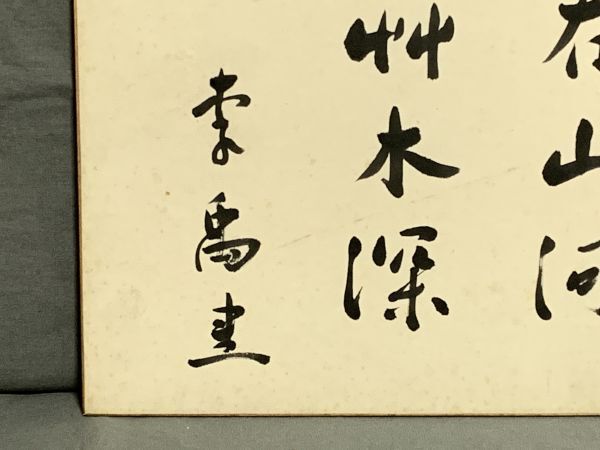 在山河
艸木深
李禹書